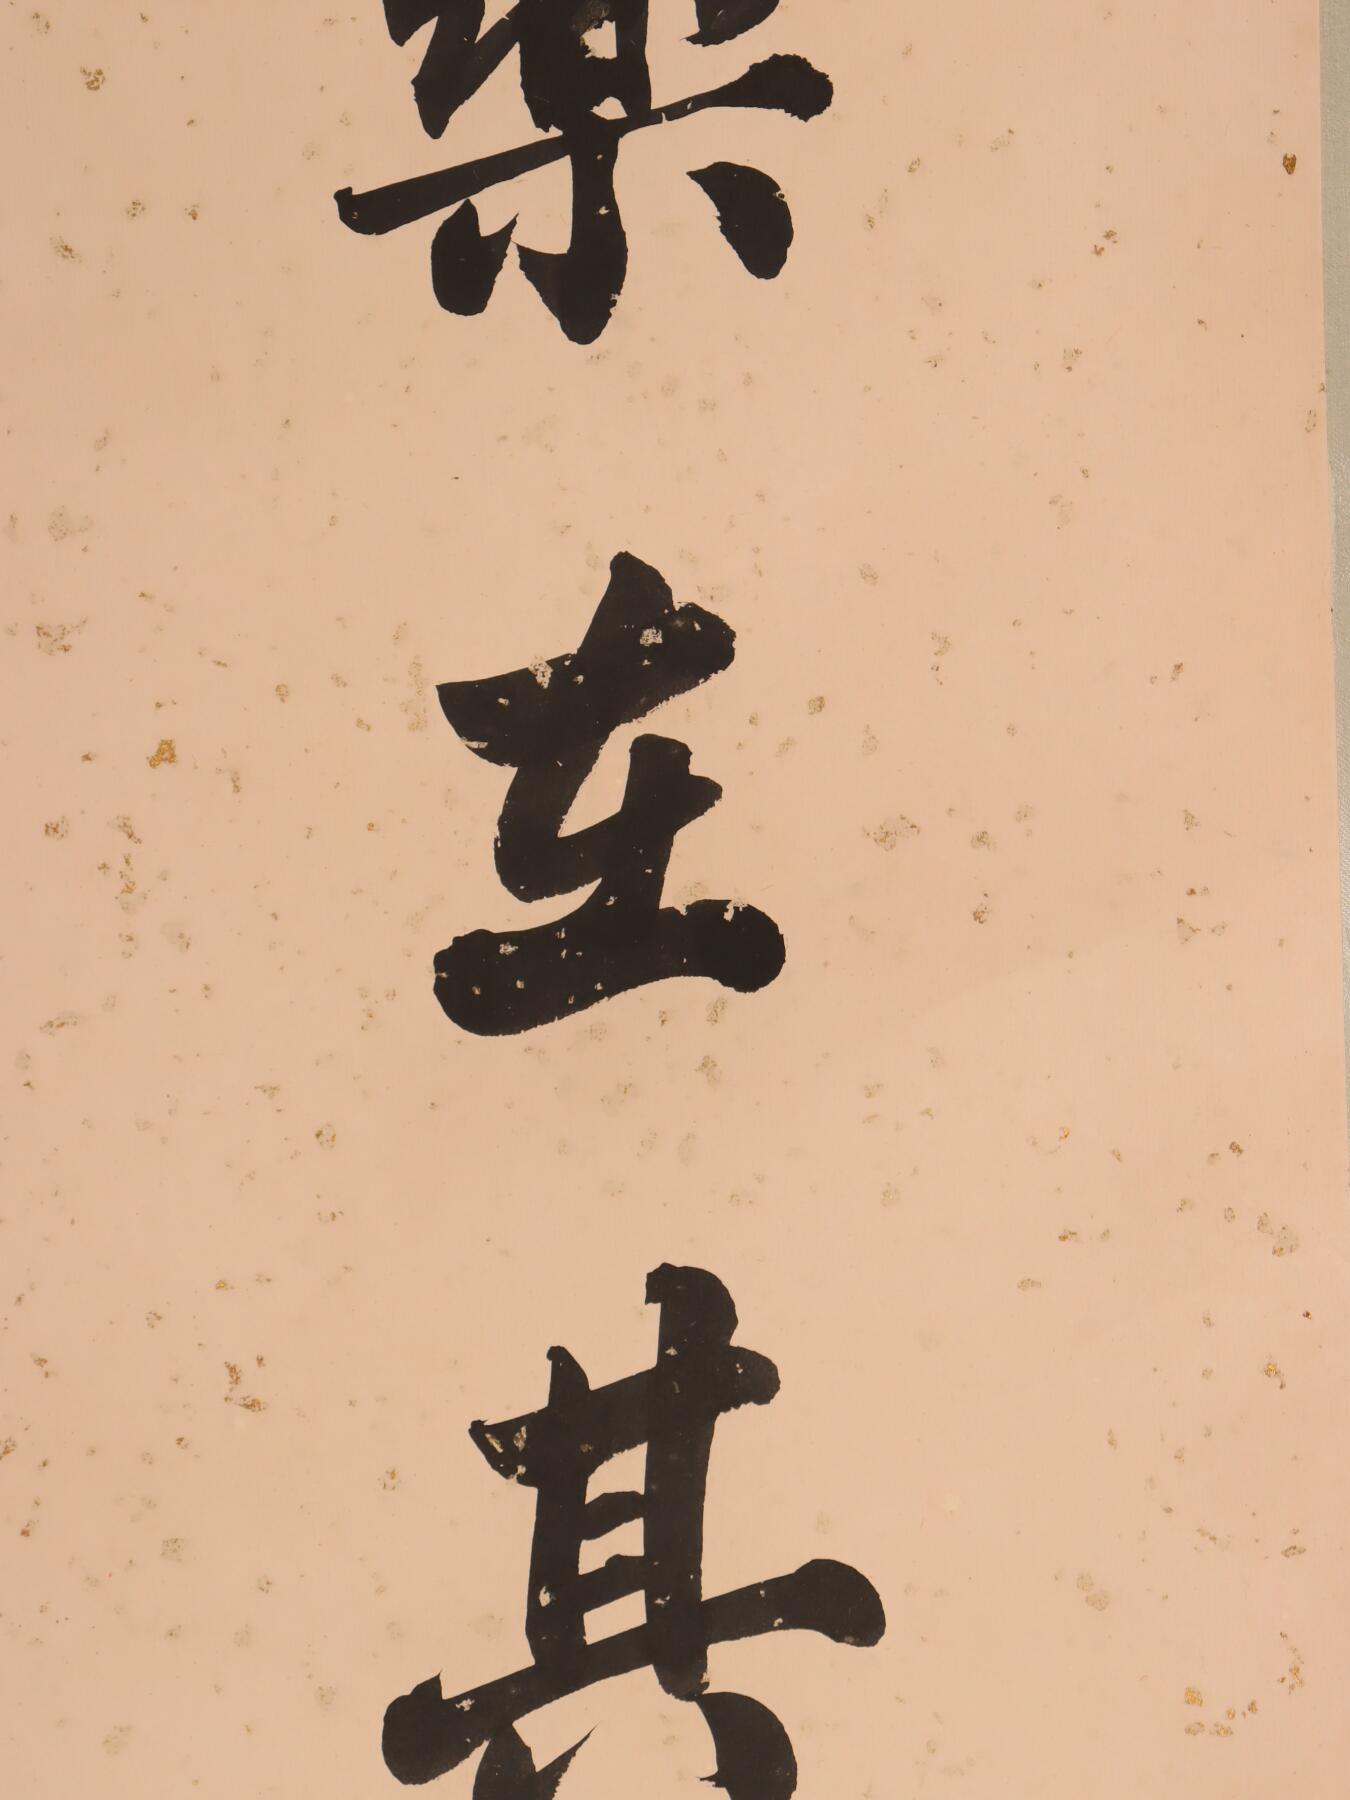 樂在其